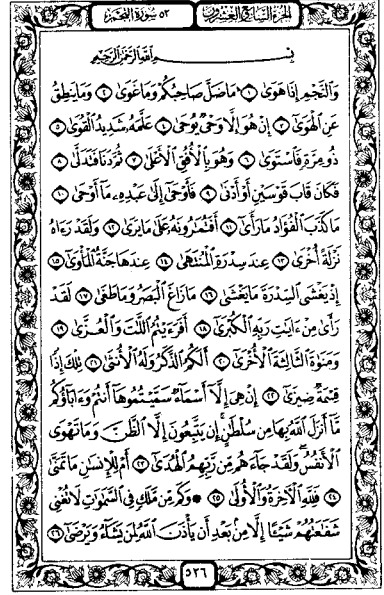 الجزء السابع والعشرون ٥٣ سورة النجم
بِسْمِ اللَّهِ الرَّحْمَٰنِ الرَّحِيمِ
وَالنَّجْمِ إِذَا هَوَىٰ ١ مَا ضَلَّ صَاحِبُكُمْ وَمَا غَوَىٰ ٢ وَمَا يَنطِقُ
عَنِ الْهَوَىٰ ٣ إِنْ هُوَ إِلَّا وَحْيٌ يُوحَىٰ ٤ عَلَّمَهُ شَدِيدُ الْقُوَىٰ ٥
ذُو مِرَّةٍ فَاسْتَوَىٰ ٦ وَهُوَ بِالْأُفُقِ الْأَعْلَىٰ ٧ ثُمَّ دَنَا فَتَدَلَّىٰ ٨
فَكَانَ قَابَ قَوْسَيْنِ أَوْ أَدْنَىٰ ٩ فَأَوْحَىٰ إِلَىٰ عَبْدِهِ مَا أَوْحَىٰ ١٠
مَا كَذَبَ الْفُؤَادُ مَا رَأَىٰ ١١ أَفَتُمَارُونَهُ عَلَىٰ مَا يَرَىٰ ١٢ وَلَقَدْ رَءَاهُ
نَزْلَةً أُخْرَىٰ ١٣ عِندَ سِدْرَةِ الْمُنتَهَىٰ ١٤ عِندَهَا جَنَّةُ الْمَأْوَىٰ ١٥
إِذْ يَغْشَى السِّدْرَةَ مَا يَغْشَىٰ ١٦ مَا زَاغَ الْبَصَرُ وَمَا طَغَىٰ ١٧ لَقَدْ
رَأَىٰ مِنْ ءَايَٰتِ رَبِّهِ الْكُبْرَىٰ ١٨ أَفَرَءَيْتُمُ اللَّٰتَ وَالْعُزَّىٰ ١٩
وَمَنَوٰةَ الثَّالِثَةَ الْأُخْرَىٰ ٢٠ أَلَكُمُ الذَّكَرُ وَلَهُ الْأُنثَىٰ ٢١ تِلْكَ إِذًا
قِسْمَةٌ ضِيزَىٰ ٢٢ إِنْ هِيَ إِلَّا أَسْمَاءٌ سَمَّيْتُمُوهَا أَنتُمْ وَءَابَاؤُكُم
مَّا أَنزَلَ اللَّهُ بِهَا مِن سُلْطَٰنٍ إِن يَتَّبِعُونَ إِلَّا الظَّنَّ وَمَا تَهْوَى
الْأَنفُسُ وَلَقَدْ جَاءَهُم مِّن رَّبِّهِمُ الْهُدَىٰ ٢٣ أَمْ لِلْإِنسَٰنِ مَا تَمَنَّىٰ
٢٤ فَلِلَّهِ الْآخِرَةُ وَالْأُولَىٰ ٢٥ ۞ وَكَم مِّن مَّلَكٍ فِي السَّمَٰوَٰتِ لَا تُغْنِي
شَفَٰعَتُهُمْ شَيْئًا إِلَّا مِن بَعْدِ أَن يَأْذَنَ اللَّهُ لِمَن يَشَاءُ وَيَرْضَىٰ ٢٦
٥٢٦